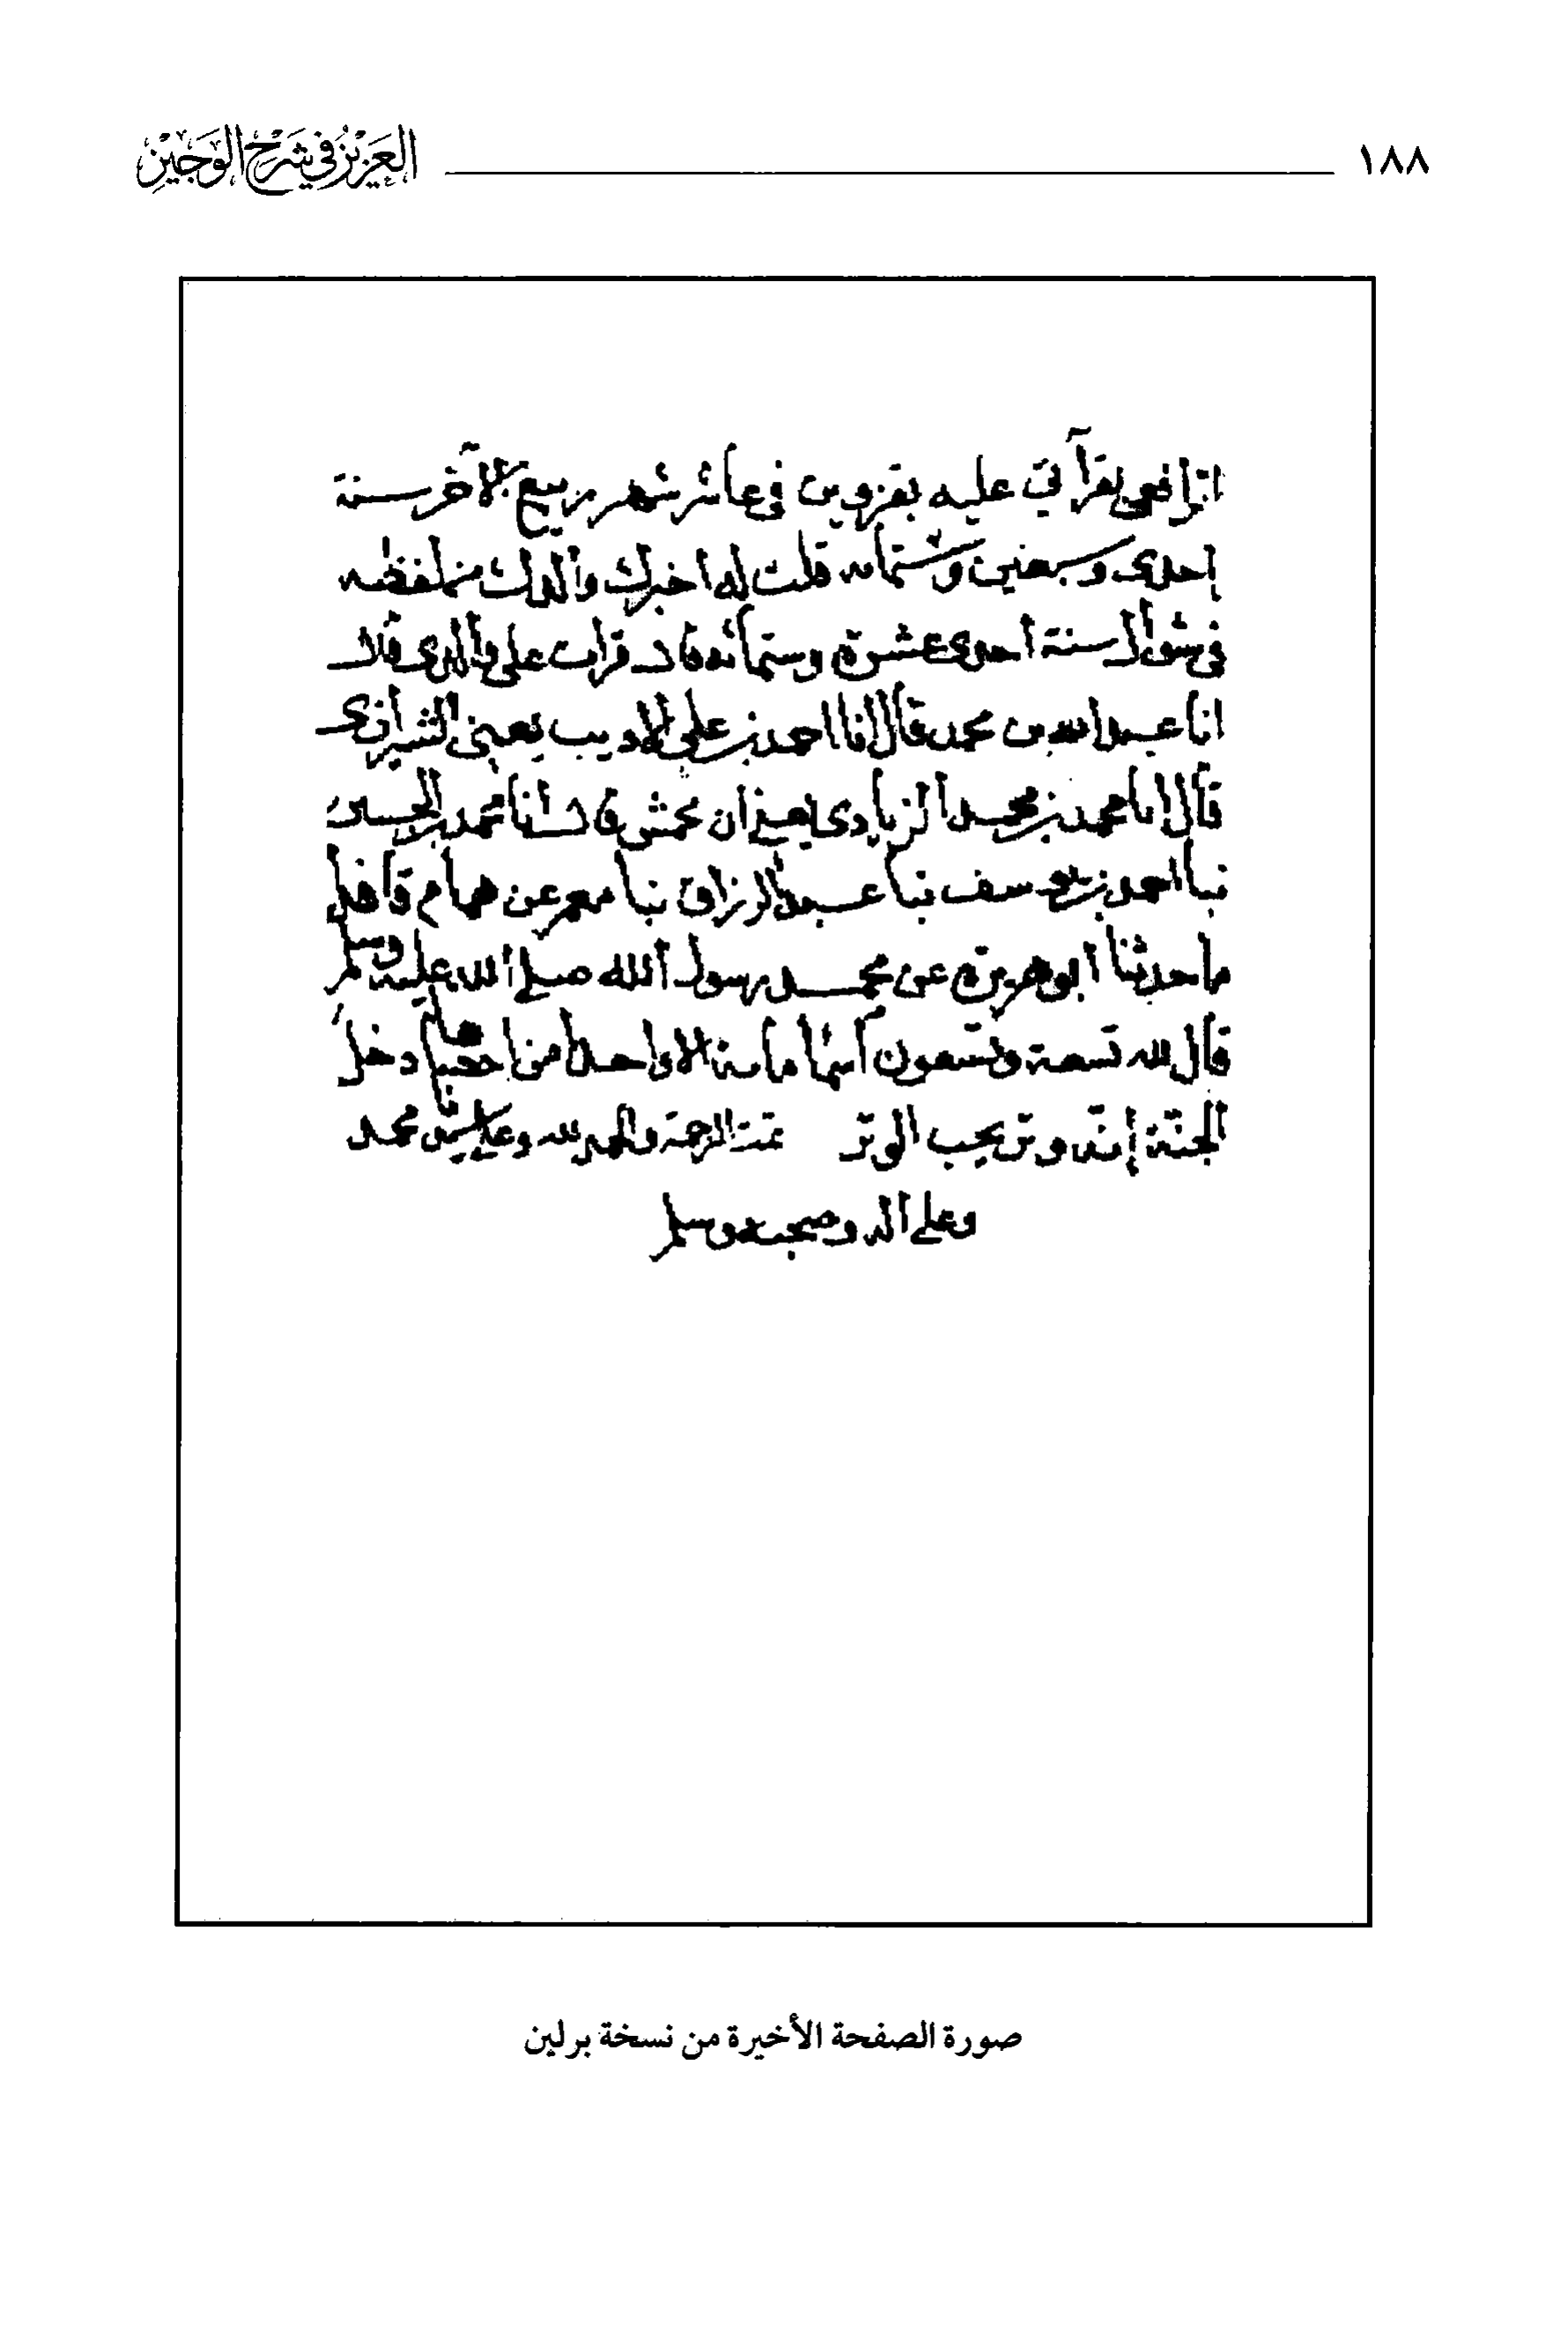 ١٨٨ العزيز في شرح الوجيز
الرافعي بقرآتي عليه بقزوين في عاشر شهر ربيع الآخر سنة
إحدى وسبعين وستمائه قلت له اخبرك والدك من لفظه
في شوال سنة احدى عشرة وستمائه قال قرات على والدي قال
انا عبد الله بن محمد قال انا احمد بن علي الاديب يعني الشيرازي
قال انا محمد بن محمد الزيادي يعني ابن محمش قال انا محمد بن الحسين
نبا احمد بن يوسف نبا عبد الرزاق نبا معمر عن همام قال هذا
ما حدثنا ابو هريرة عن محمد رسول الله صلى الله عليه وسلم
قال لله تسعة وتسعون آسما مائة الا واحدا من احصاها دخل
الجنة إنه وتر يحب الوتر تمت الرحمة والحمد لله وعلى محمد
وعلى اله وصحبه وسلم
صورة الصفحة الأخيرة من نسخة برلين